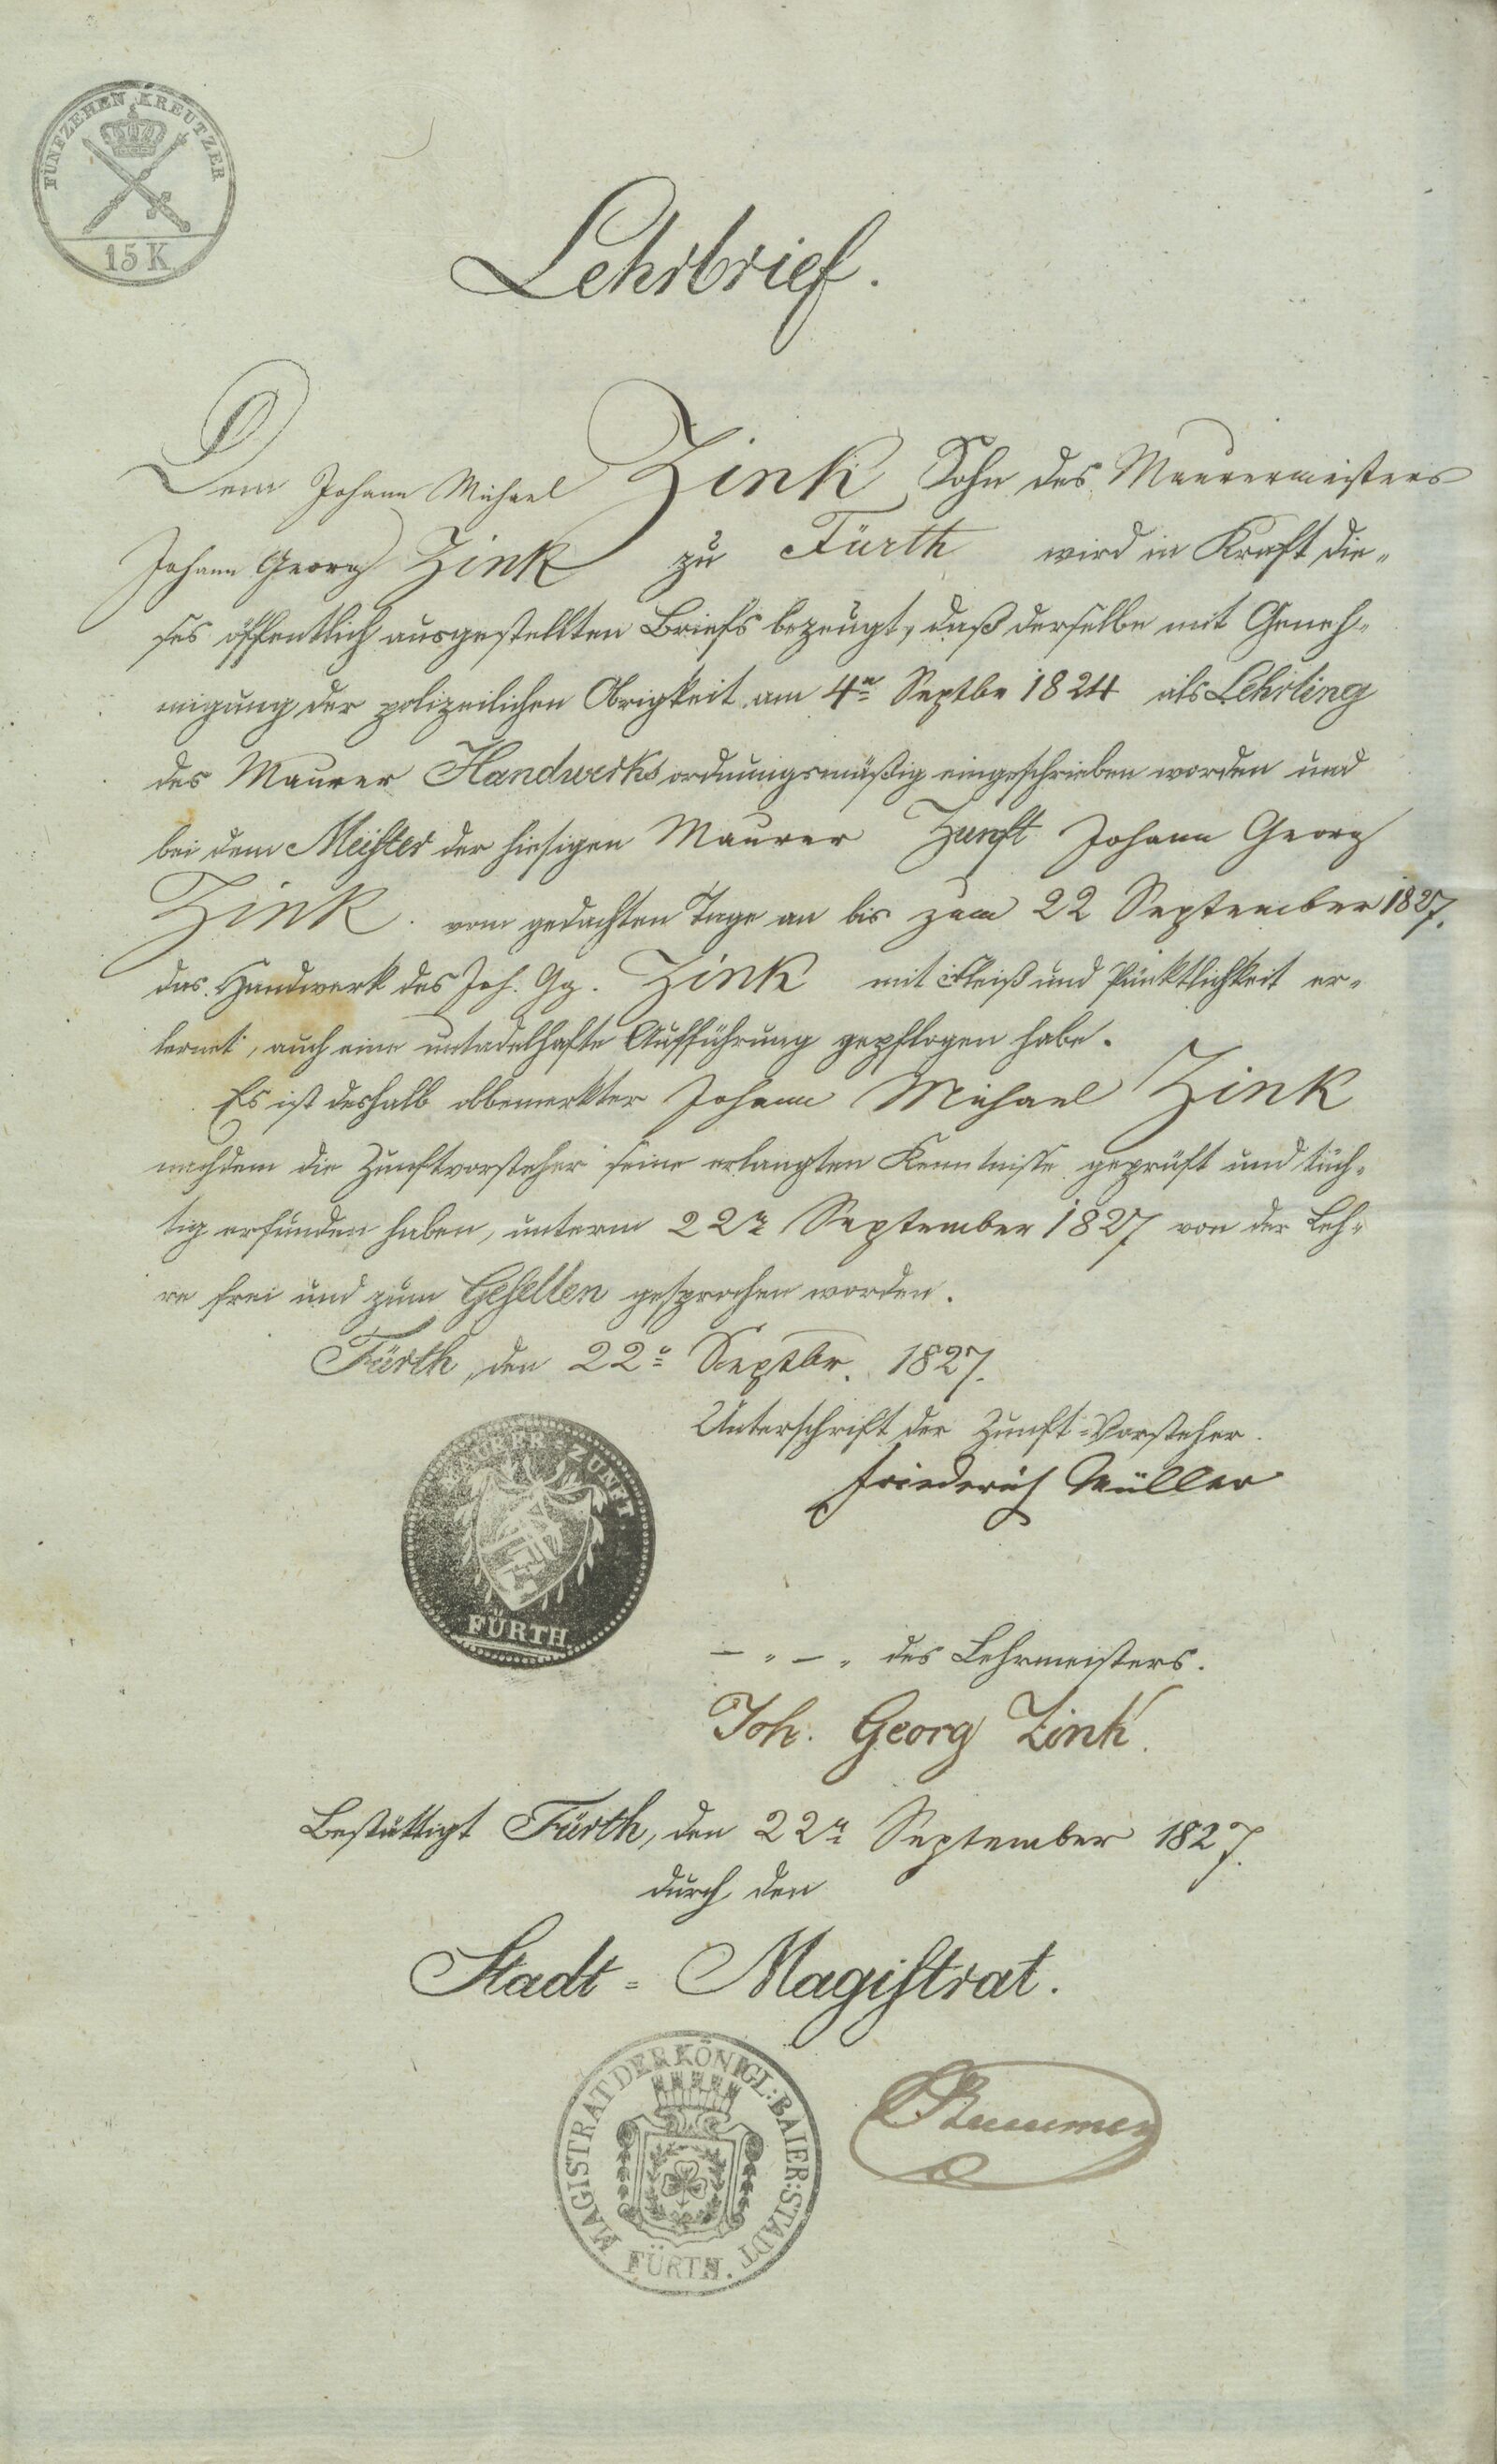 FÜNFZEHEN KREUTZER
15 K
Lehrbrief.
Dem Johann Michael Zink Sohn des Maurermeisters
Johann Georg Zink zu Fürth wird in Kraft die-
ses öffentlich ausgestellten Briefs bezeugt, daß derselbe mit Geneh-
migung der polizeilichen Obrigkeit am 4n Septbr 1824 als Lehrling
des Maurer Handwerks ordnungsmäßig eingeschrieben worden und
bei dem Meister der hiesigen Maurer Zunft Johann Georg
Zink. vom gedachten Tage an bis zum 22 September 1827.
das Handwerk des Joh. Gg. Zink mit Fleiß und Pünktlichkeit er-
lernt, auch eine untadelhafte Aufführung gepflogen habe.
Es ist deshalb obbemerkter Johann Michael Zink
nachdem die Zunftvorsteher seine erlangten Kenntnisse geprüft und tüch-
tig erfunden haben, unterm 22n September 1827 von der Leh-
re frei und zum Gesellen gesprochen worden.
Fürth, den 22n Septbr. 1827.
Unterschrift der Zunft-Vorsteher.
Friederich Müller
MAURER-ZUNFT
FÜRTH
— „ — „ des Lehrmeisters.
Joh. Georg Zink.
Bestättigt Fürth, den 22n September 1827.
durch den
Stadt-Magistrat.
MAGISTRAT DER KÖNIGL: BAIER: STADT
FÜRTH.